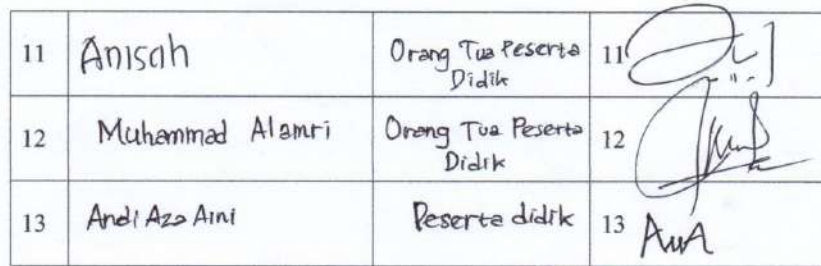 11 Anisah Orang Tua Peserta Didik 11
12 Muhammad Alamri Orang Tua Peserta Didik 12
13 Andi Aza Aini Peserta didik 13